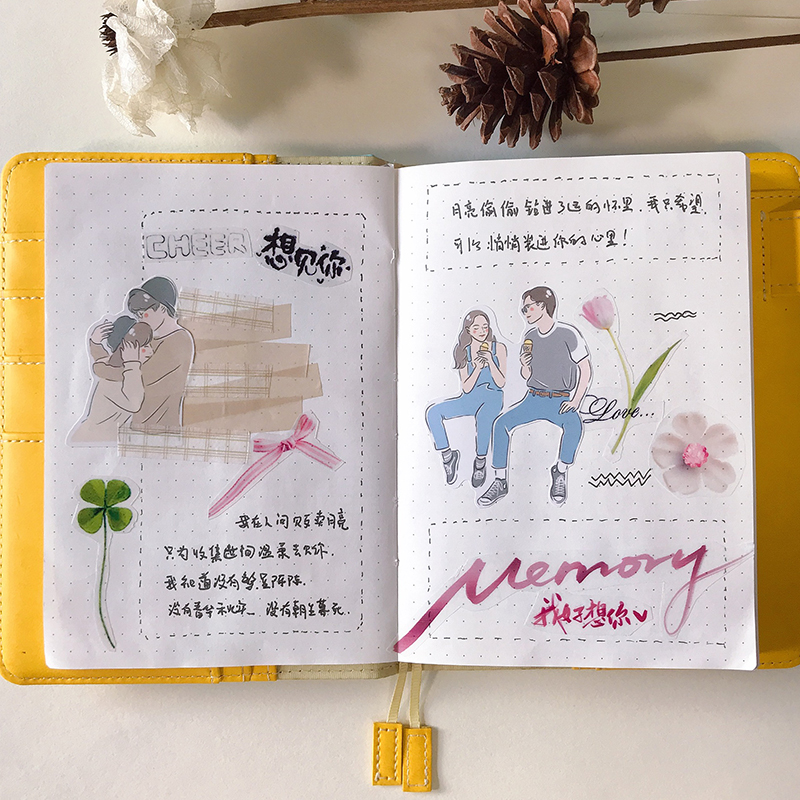 CHEER
想见你
我在人间贩卖月亮
只为收集世间温柔去见你.
我知道没有繁星阵阵.
没有春华秋实_ 没有朝生暮死.
月亮偷偷钻进了运的怀里. 我只希望
可以悄悄装进你的心里!
Love...
Memory
我好想你